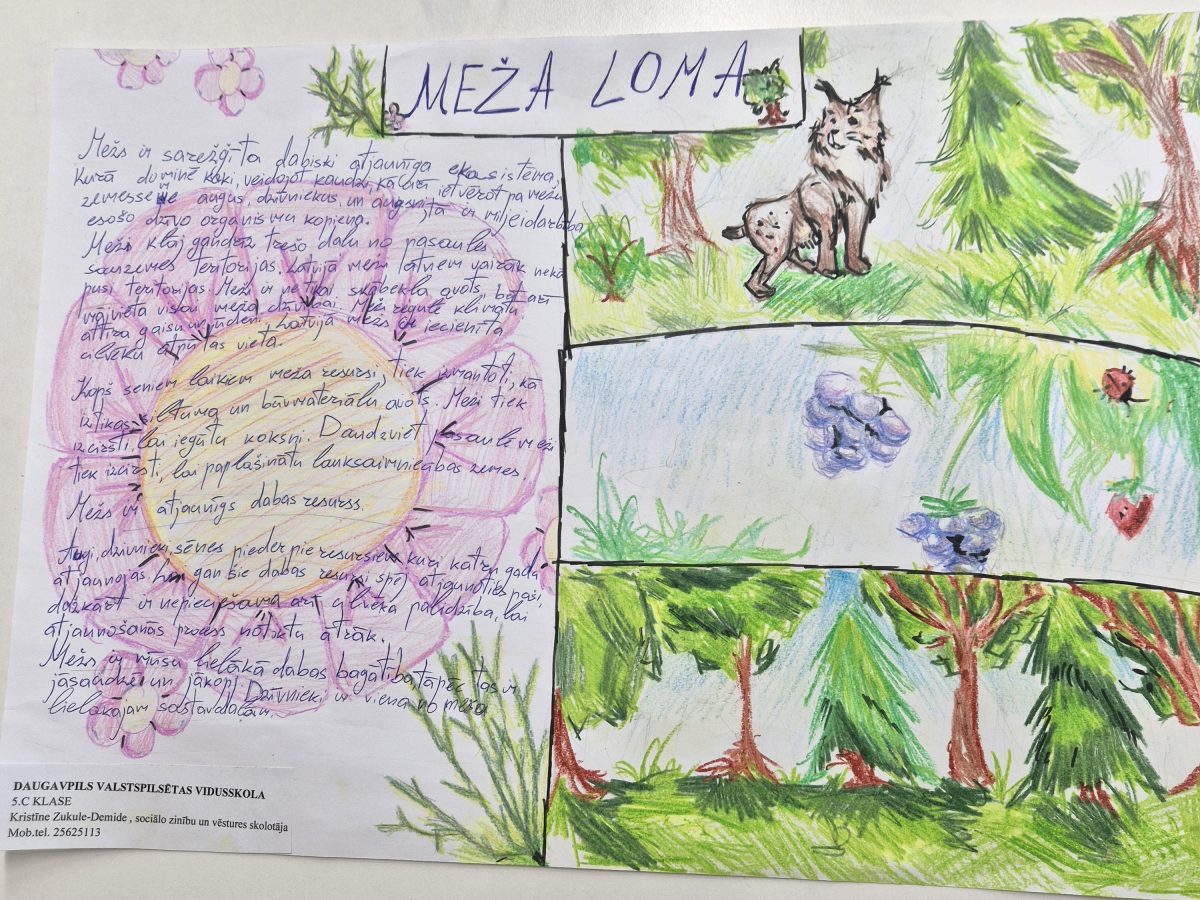 MEŽA LOMA
Mežs ir sarežģīta dabiski atjaunīga ekosistēma,
kurā dominē koki, veidojot kaudzi, kā arī ietverot pa mežu
zemersedwe augus, dzīvniekus, un augsni, jta ir mijeidarbība
esošo dzīvo organismu kopiena.
Meži klāj gandrīz trešo daļu no pasaules
sauszemes teritorijas. Latvijā meži latņem vairāk nekā
pusi teritorijas. Meži ir ne tikai skābekļa avots, bet arī
mājvieta visai meža dzīvībai. Meži regulē klimatu
attīra gaisu un ūdeni. Latvijā mežs ir iecienīta
cilvēku atpūtas vieta.
Kopš seniem laikiem meža resursi, tiek izmantoti, kā
iztikas, siltuma un būvmateriālu avots. Meži tiek
izcirsti, lai iegūtu koksni. Daudzviet pasaulē meži
tiek izcirsti, lai paplašinātu lauksaimniecības zemes.
Mežs ir atjaunīgs dabas resurss.
Augi, dzīvnieki, sēnes pieder pie resursiem kuri katru gadu
atjaunojas. gan šie dabas resursi spēj atjaunoties paši,
dažkārt ir nepieciešama arī cilvēka palīdzība, lai
atjaunošanas process notiktu ātrāk.
Mežs ir mūsu lielākā dabas bagātība, tāpēc tas ir
jāsaudzē un jākopj. Dzīvnieki ir viena no meža
lielākajām sastāvdaļām.
DAUGAVPILS VALSTSPILSĒTAS VIDUSSKOLA
5.C KLASE
Kristīne Zukule-Demide , sociālo zinību un vēstures skolotāja
Mob.tel. 25625113